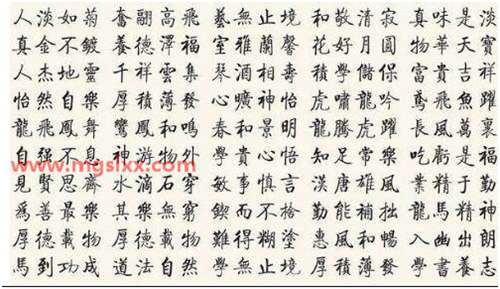 人淡如菊 奮翮高飛 藝無止境 和敬清寂 真味是淡
真金不鍍 養德澤福 室雅蘭馨 花好月圓 物華天寶
人杰地靈 千祥雲集 琴酒相壽 積學儲 富貴吉祥
怡然自樂 厚積薄發 心曠神怡 虎嘯龍吟 鳶飛魚躍
龍飛鳳舞 鸞鳳和鳴 春和景明 龍騰虎躍 長風萬裏
自强不息 神游物外 學貴心悟 知足常樂 吃虧是福
www.mgslxx.com
見賢思齊 水滴石穿 敏事慎言 漢唐雄風 業精于勤
爲善最樂 其樂無窮 鍥而不捨 勤能補拙 龍馬精神
厚德載物 厚德載物 難得糊塗 惠風和暢 入幽出朗
馬到功成 道法自然 學無止境 厚積薄發 學書養志